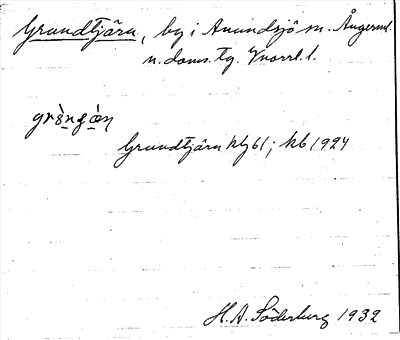 Grundtjärn, by i Anundsjö sn. Ångerml.
n. doms. tg. Vnorrl. l.
Grundtjärn klg 61; kb 1924
H.A. Söderberg 1932